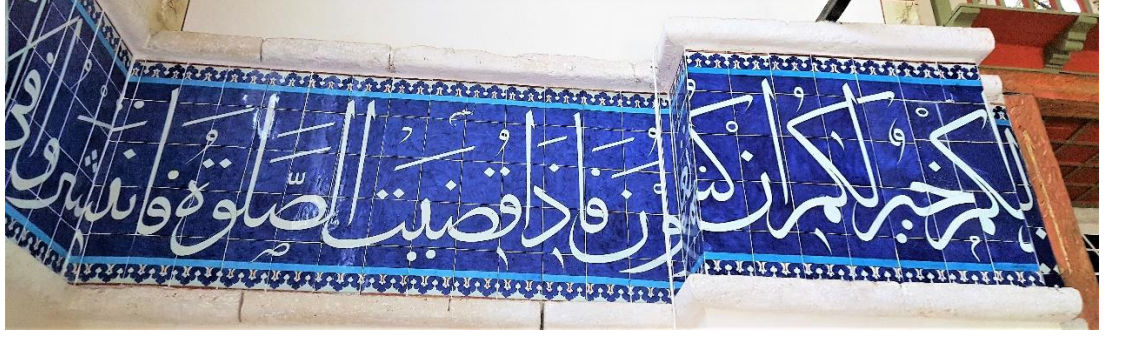 ذلكم خير لكم ان كنتم تعلمون فاذا قضيت الصّلوة فانتشروا فى